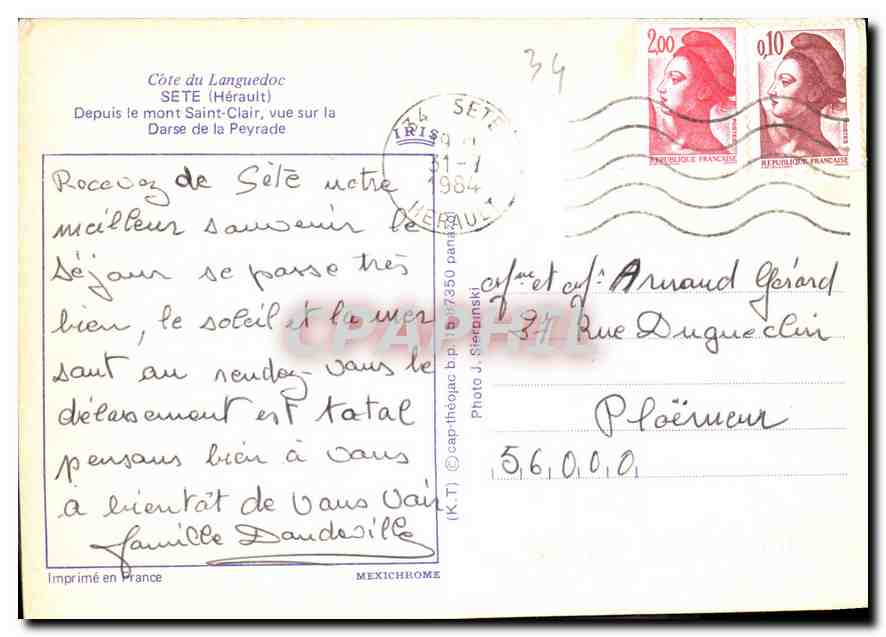 Côte du Languedoc
SETE (Hérault)
Depuis le mont Saint-Clair, vue sur la
Darse de la Peyrade
IRIS
34
34 SETE
31-7
1984
HERAULT
2,00
REPUBLIQUE FRANÇAISE
POSTES
0,10
REPUBLIQUE FRANÇAISE
POSTES
Recevez de Sète notre
meilleur souvenir le
séjour se passe très
bien, le soleil et la mer
sont au rendez-vous le
délassement est total
pensons bien à vous
à bientôt de vous voir
famille Dandeville
Imprimé en France
MEXICHROME
(K.T) © cap-théojac b.p. 87350 panazol
Photo J. Sierpinski
Mme et Mr Armand Gérard
37 Rue Dugueclin
Ploërmeur
56000
CPAPHIL